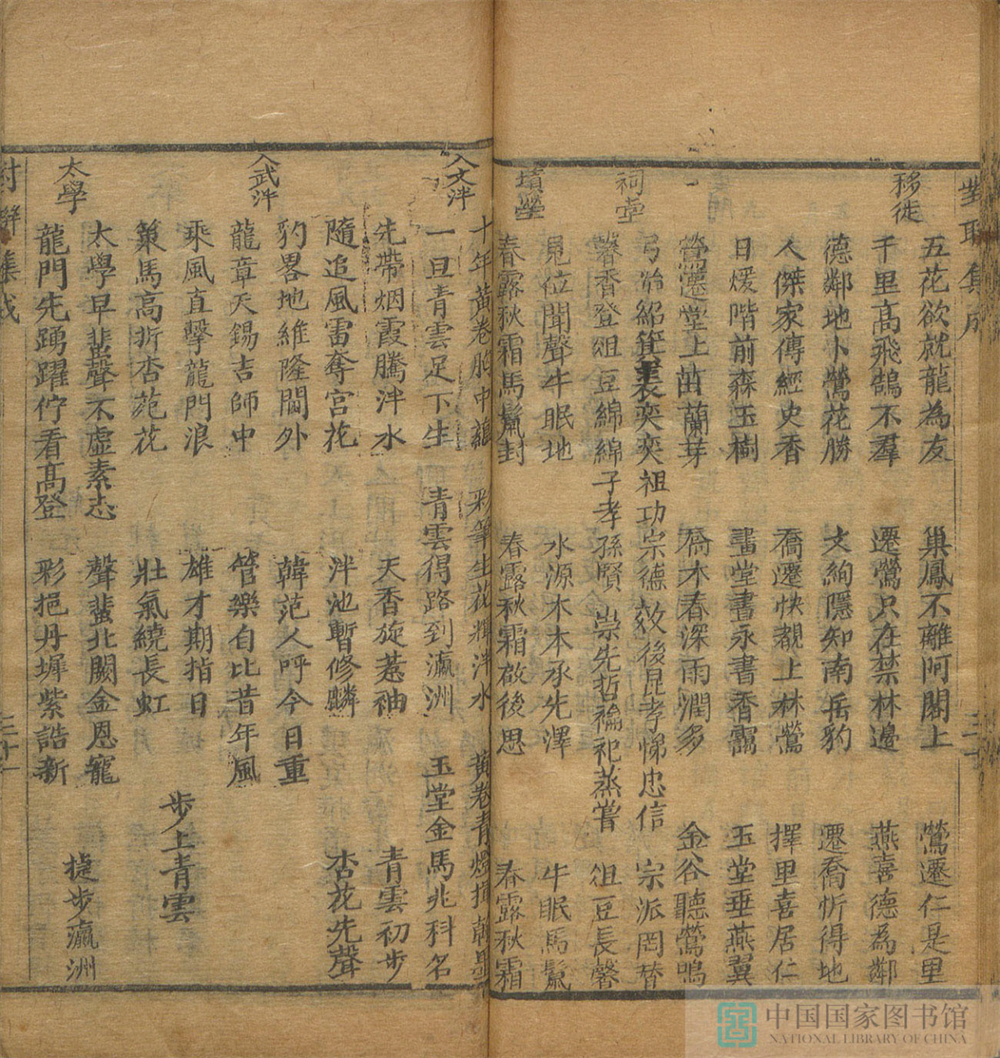 對聯集成
移徙
五花欲就龍為友 巢鳳不離阿閣上 鶯遷仁是里
千里高飛鵠不羣 遷鶯只在禁林邊 燕喜德為鄰
德鄰地卜鶯花勝 文絢隱知南岳豹 遷喬忻得地
人傑家傳經史香 喬遷快覩上林鶯 擇里喜居仁
日煖階前森玉樹 畫堂書永書香靄 玉堂垂燕翼
鶯遷堂上茁蘭芽 喬木春深雨潤多 金谷聽鶯鳴
祠堂
弓冶紹箕裘奕奕祖功宗德 後昆孝悌忠信 宗派罔替
馨香登俎豆綿綿子孝孫賢 崇先哲禴祀蒸嘗 俎豆長馨
墳塋
見位聞聲牛眠地 水源木本承先澤 牛眠馬鬣
春露秋霜馬鬣封 春露秋霜啟後思 春露秋霜
三十
入文泮
十年黃卷胸中 彩筆生花輝泮水 黃卷青燈
一旦青雲足下生 青雲得路到瀛洲 玉堂金馬兆科名
先帶烟霞騰泮水 天香旋惹袖 青雲初步
隨追風雷奪宮花 泮池暫修麟 杏花先聲
入武泮
豹畧地維隆閫外 韓范人呼今日重
龍章天錫吉師中 管樂自比昔年風
乘風直擊龍門浪 雄才期指日 步上青雲
策馬高折杏苑花 壯氣繞長虹
太學
太學早蜚聲不虛素志 聲蜚北闕金恩寵 捷步瀛洲
龍門先踴躍佇看高登 彩挹丹墀紫誥新
集成
三十一
中国国家图书馆
NATIONAL LIBRARY OF CHINA